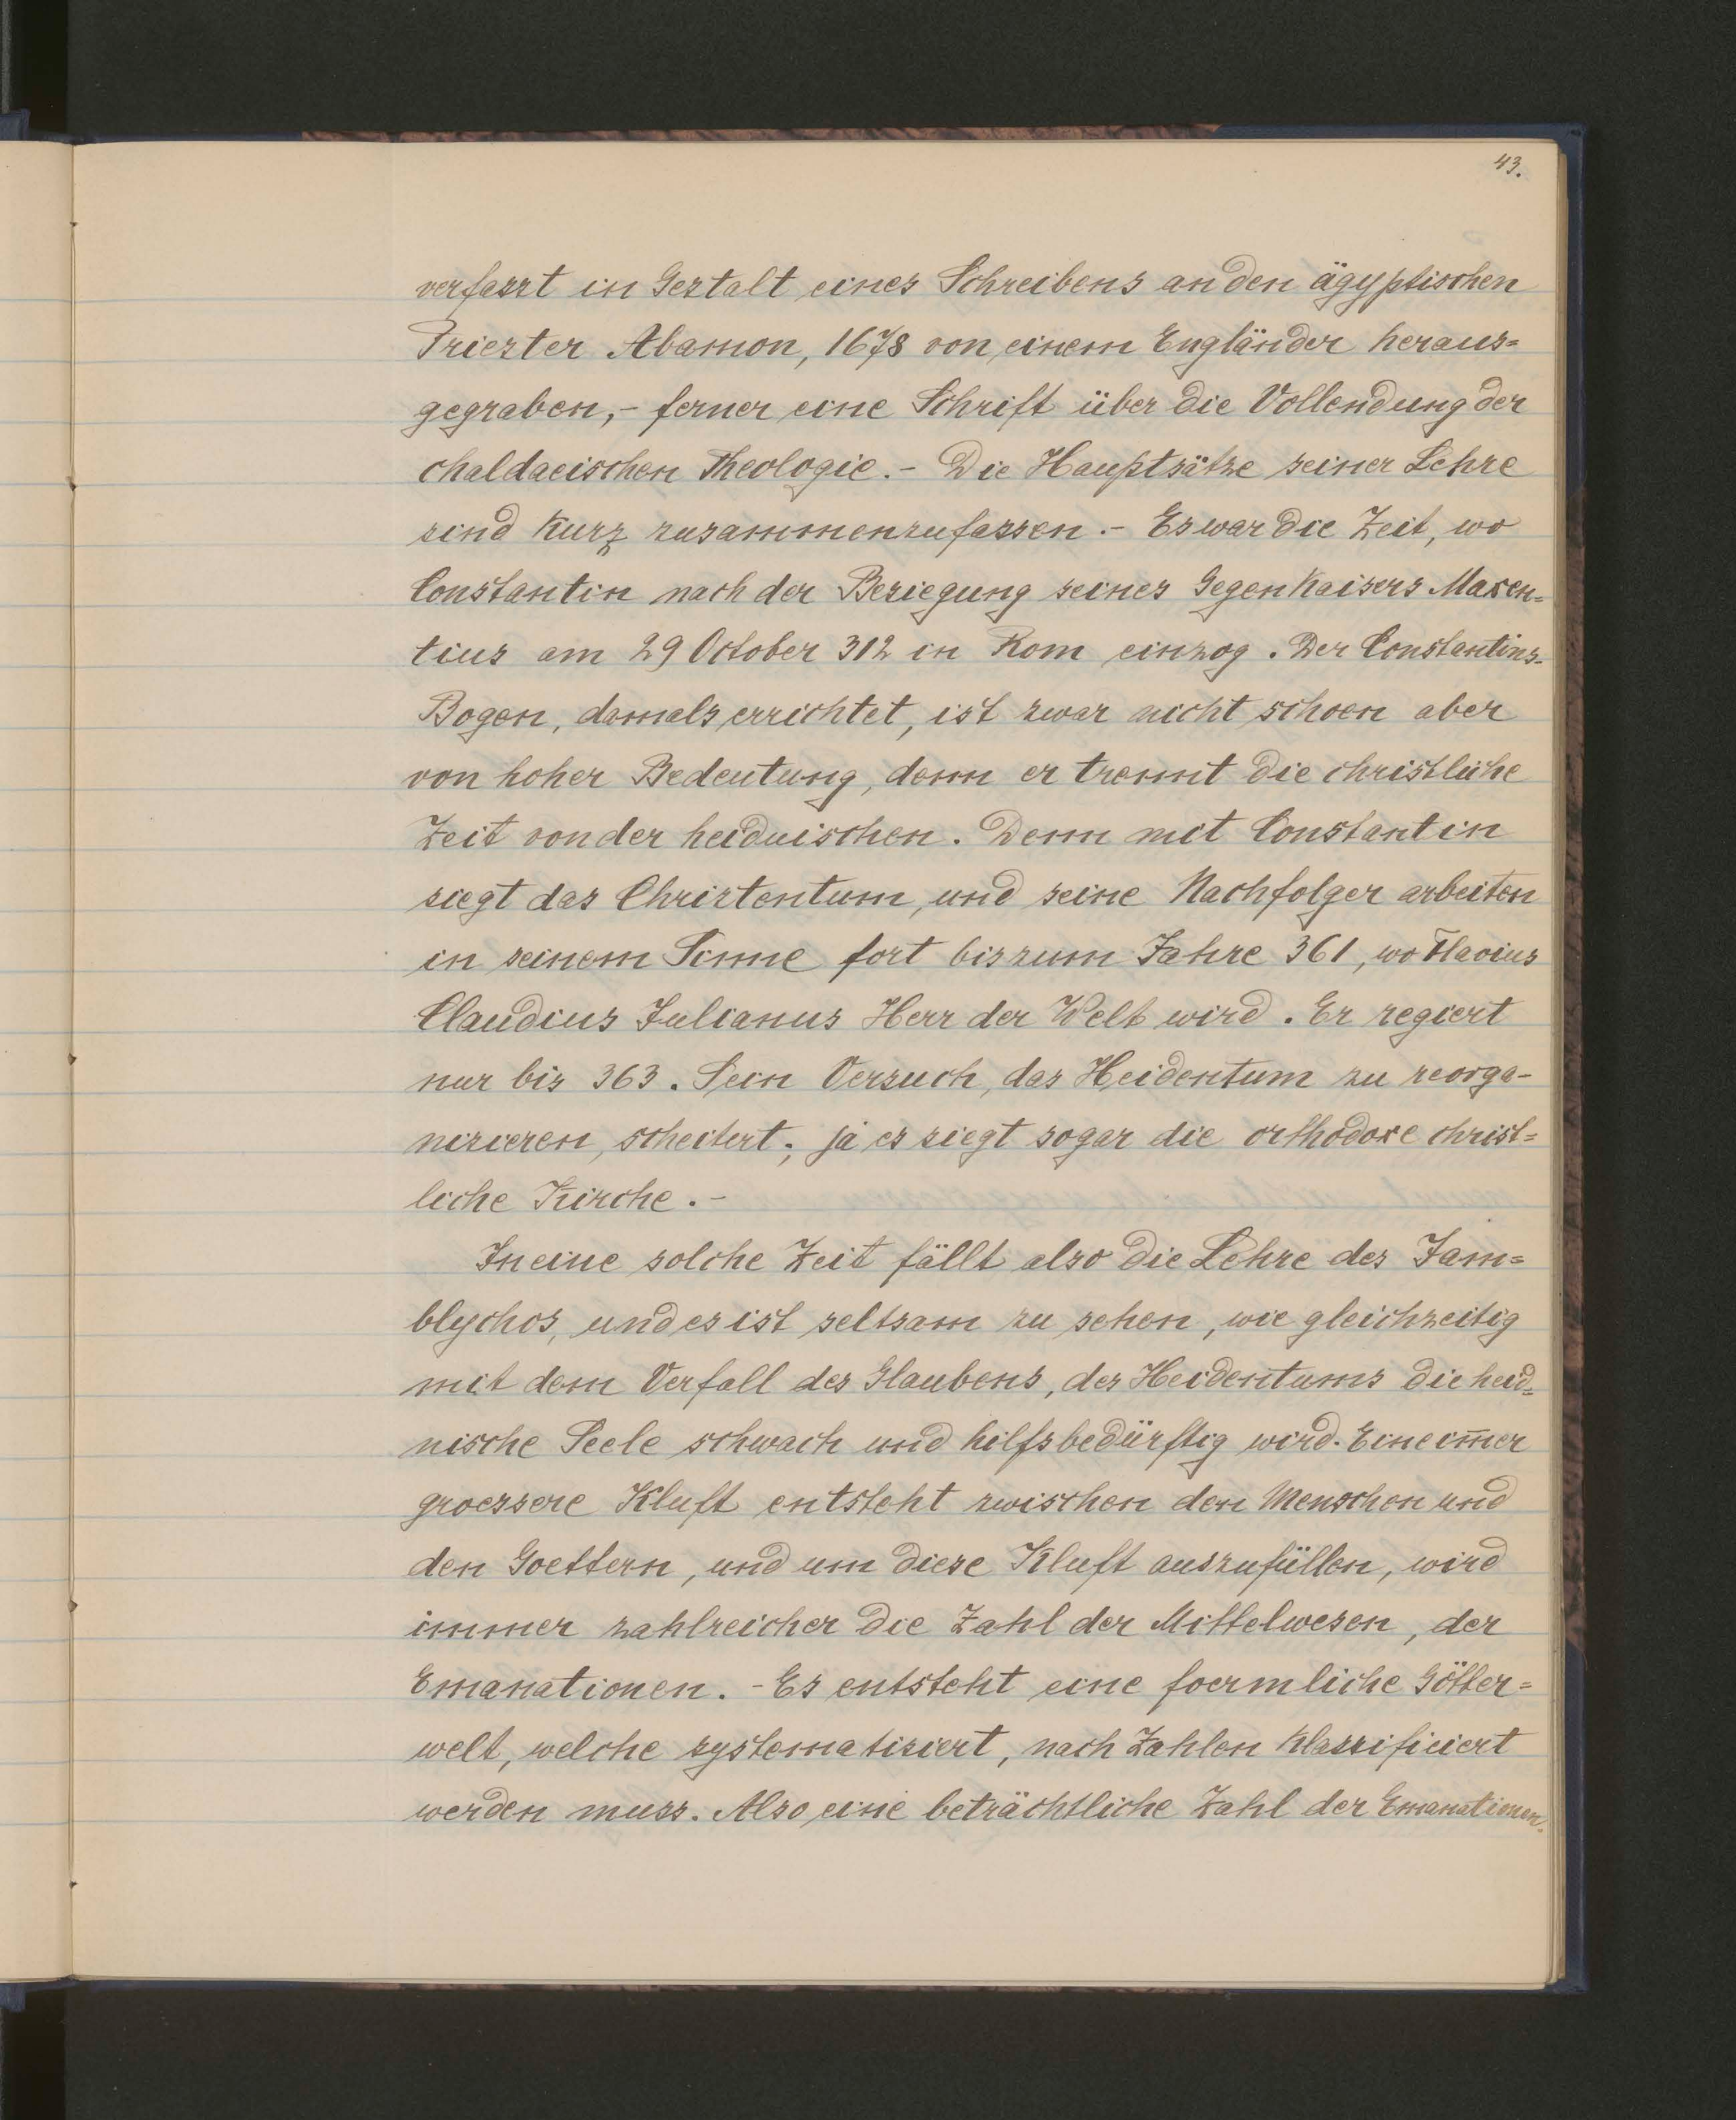 43.
verfasst in Gestalt eines Schreibens an den ägyptischen
Priester Abamon, 1678 von einem Engländer heraus=
gegraben, - ferner eine Schrift über die Vollendung der
chaldaeischen Theologie. - Die Hauptsätze seiner Lehre
sind kurz zusammenzufassen. - Es war die Zeit, wo
Constantin nach der Besiegung seines Gegenkaisers Maxen=
tius am 29 October 312 in Rom einzog. Der Constantins-
Bogen, damals errichtet, ist zwar nicht schoen aber
von hoher Bedeutung, denn er trennt die christliche
Zeit von der heidnischen. Denn mit Constantin
siegt das Christentum, und seine Nachfolger arbeiten
in seinem Sinne fort bis zum Jahre 361, wo Flavius
Claudius Julianus Herr der Welt wird. Er regiert
nur bis 363. Sein Versuch, das Heidentum zu reorga-
nisieren, scheitert; ja es siegt sogar die orthodoxe christ=
liche Kirche. -
In eine solche Zeit fällt also die Lehre des Jam=
blychos, und es ist seltsam zu sehen, wie gleichzeitig
mit dem Verfall des Glaubens, des Heidentums die heid=
nische Seele schwach und hilfsbedürftig wird. Eine im̅er
groessere Kluft entsteht zwischen den Menschen und
den Goettern, und um diese Kluft auszufüllen, wird
immer zahlreicher die Zahl der Mittelwesen, der
Emanationen. - Es entsteht eine foermliche Götter=
welt, welche systematisiert, nach Zahlen klassificiert
werden muss. Also eine beträchtliche Zahl der Emanationen.